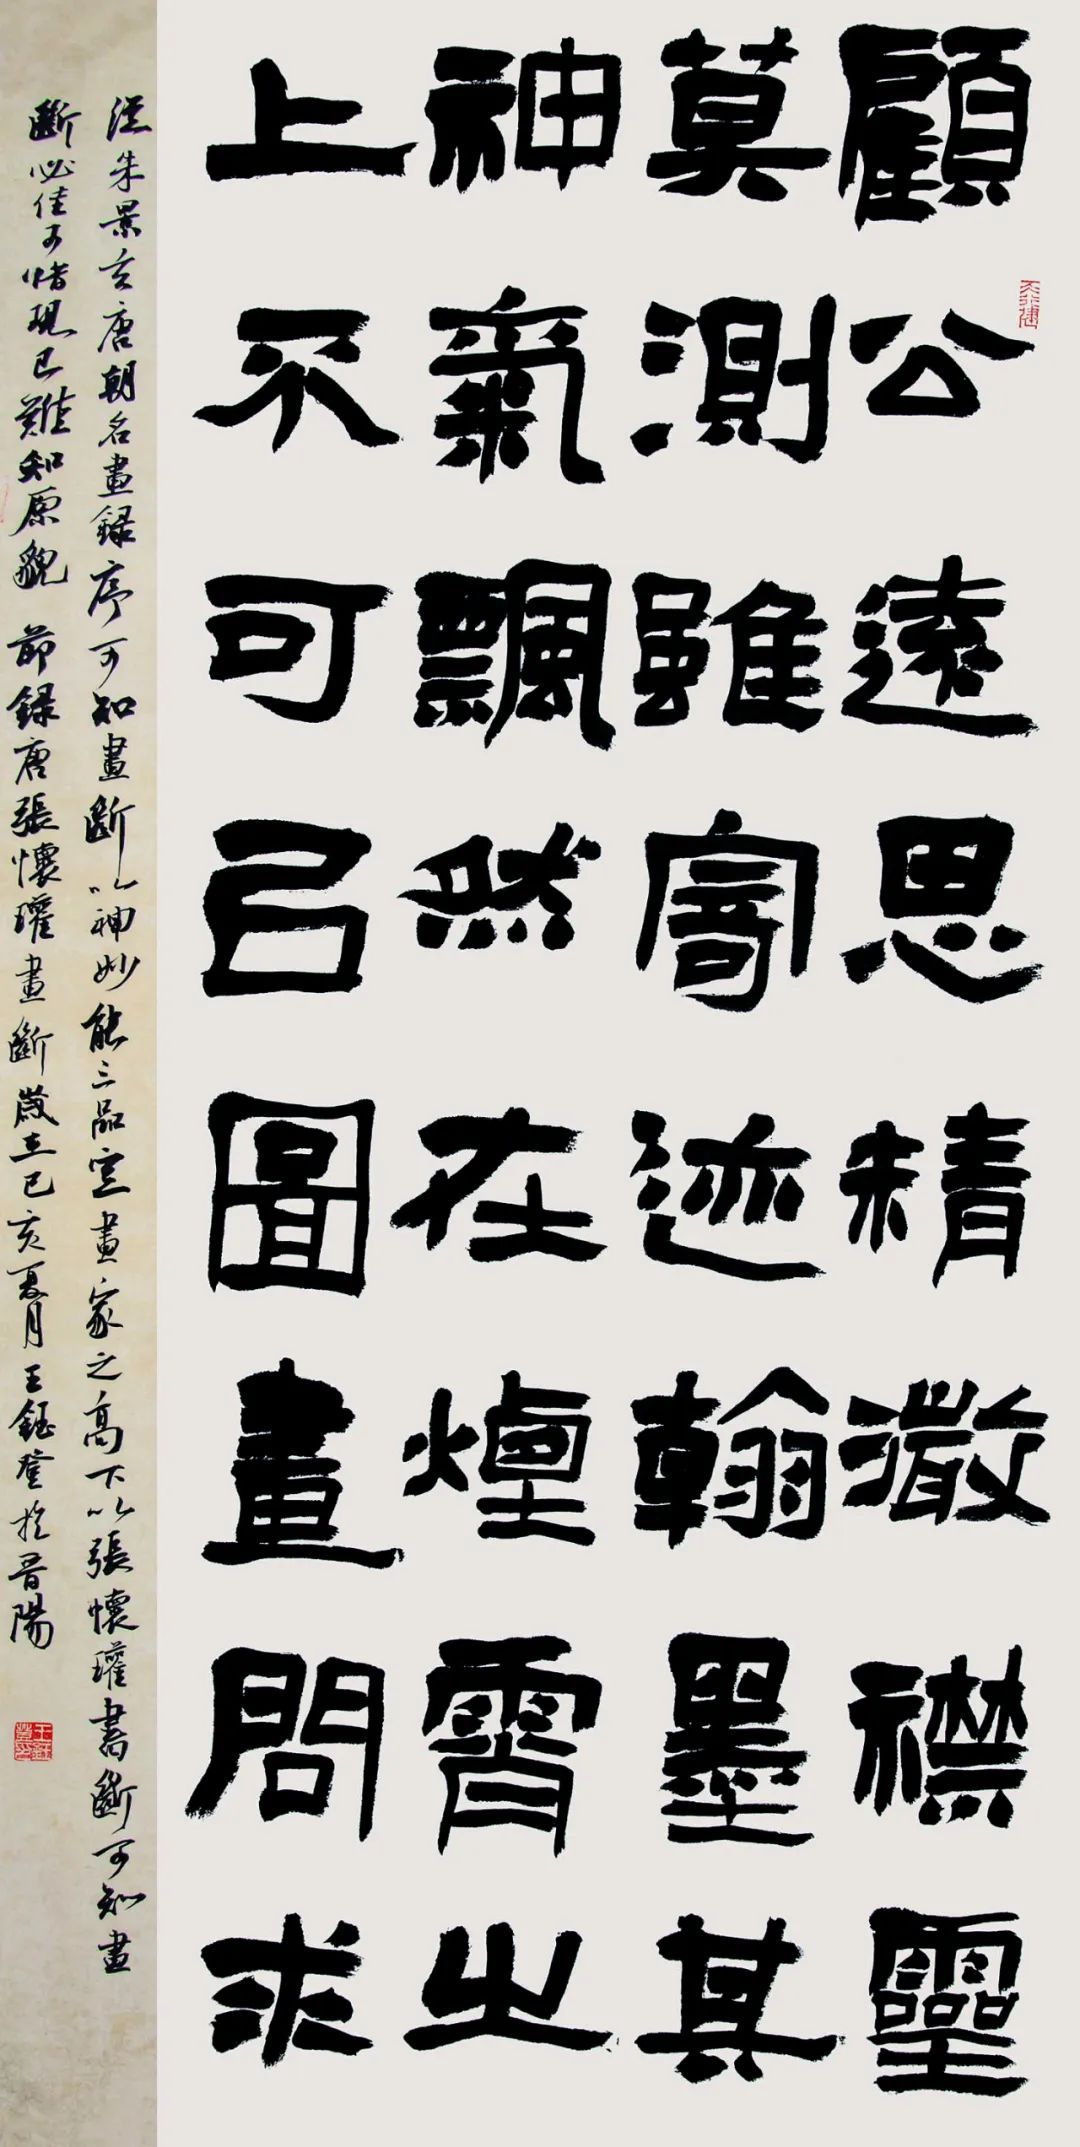 顧公遠思精微襟靈
莫測雖寄迹翰墨其
神氣飄然在煙霄之
上不可㠯圖畫間求
從朱景玄唐朝名畫録序可知畫斷以神妙能三品定畫家之高下以張懷瓘書斷可知畫
斷必佳可惜現已難知原貌 節録唐張懷瓘畫斷歲在己亥夏月王鈺登於晋陽
天行健